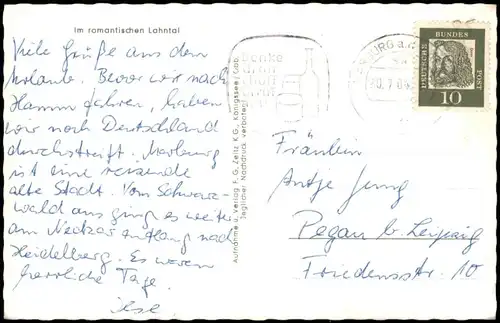 Im romantischen Lahntal
Viele Grüße aus dem
Urlaub. Bevor wir nach
Hamm fahren, haben
wir noch Deutschland
durchstreift. Marburg
ist eine reizende
alte Stadt. Vom Schwarz-
wald aus ging es weiter
am Neckar entlang nach
Heidelberg. Es waren
herrliche Tage.
Ilse
Aufnahme u. Verlag F. G. Zeitz K.G., Königssee / Obb.
Jeglicher Nachdruck verboten!
Denke
daran
DEUTSCHE
BUNDES
POST
10
BURG a.d.
20.7.64
Fräulein
Antje Jung
Pegau bei Leipzig
Friedensstr. 10